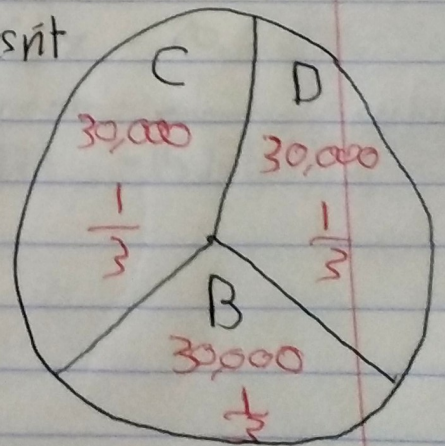 srit
C
30,000
1/3
D
30,000
1/3
B
30,000
1/3